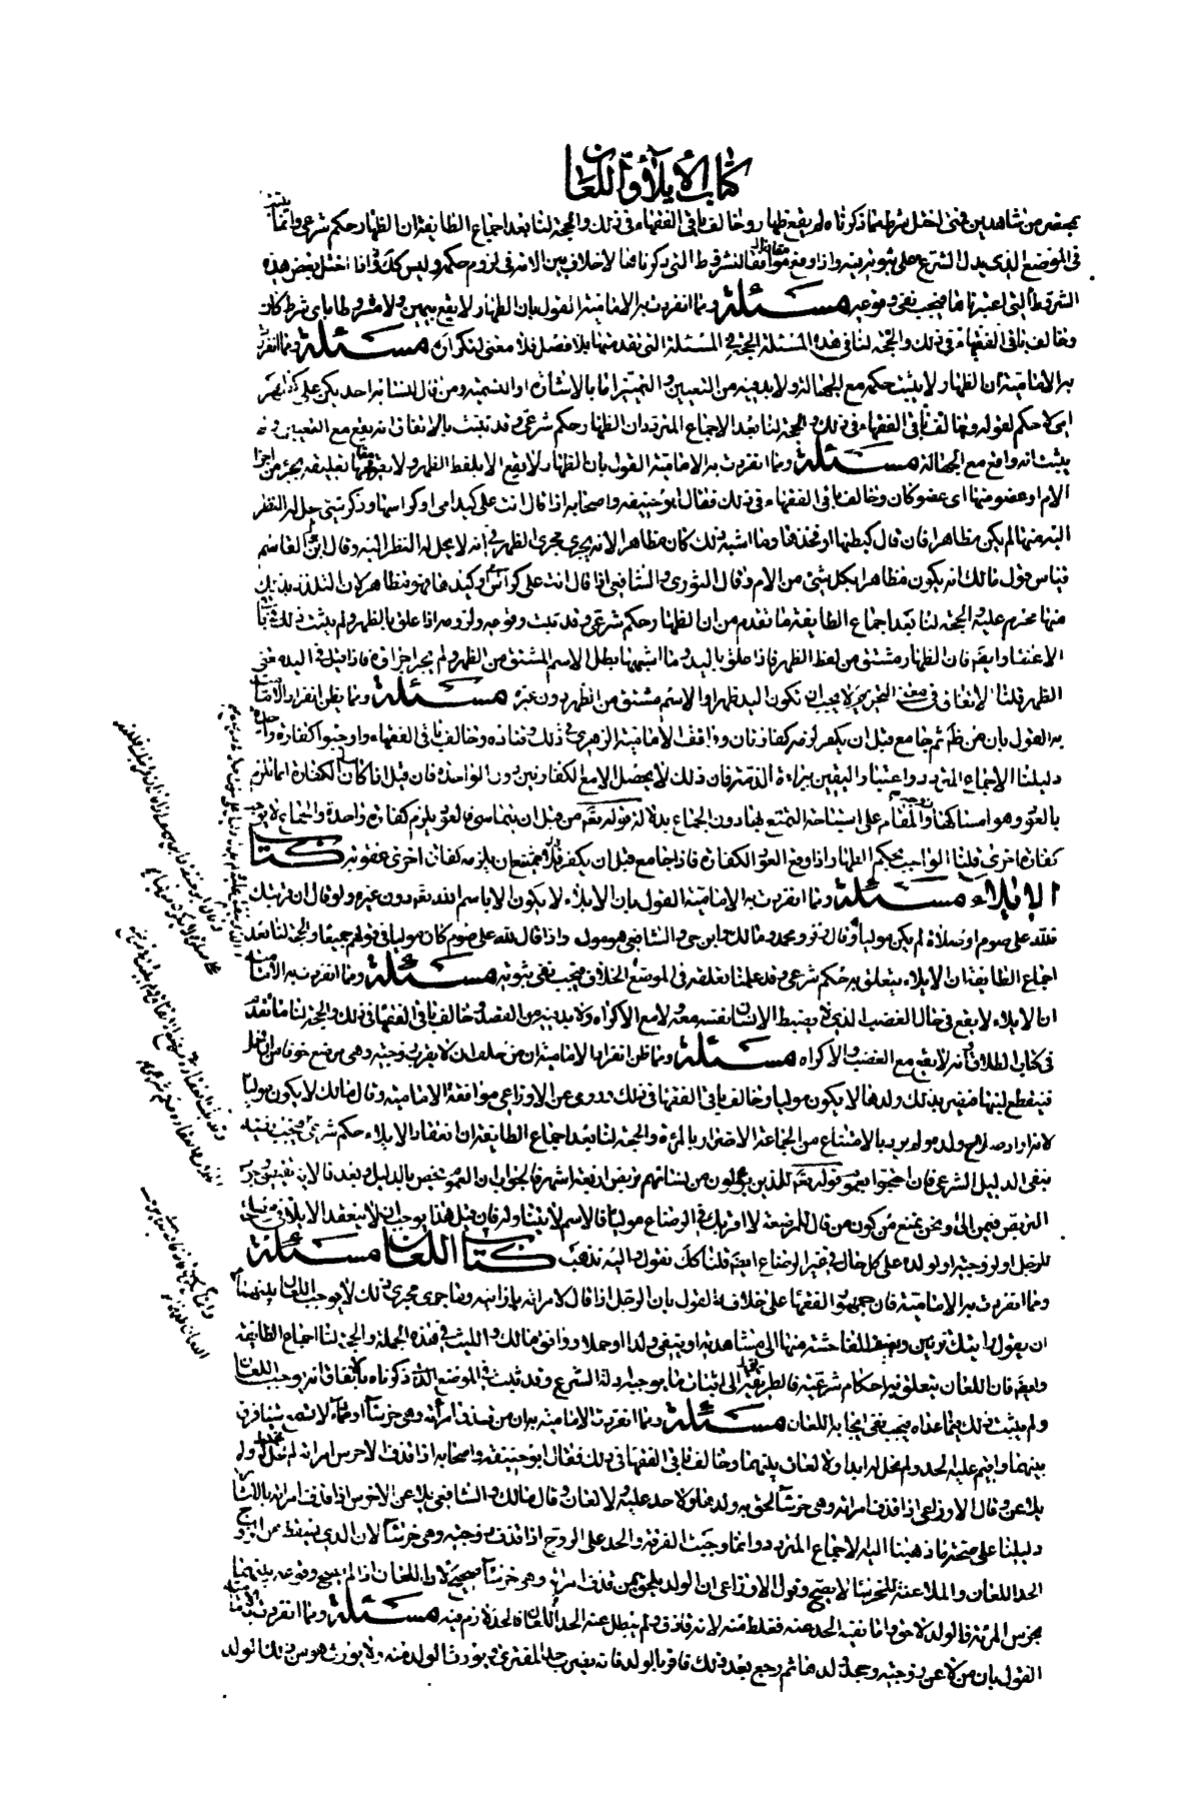 كتاب الايلاء واللعان
بمحضر من شاهدين فمتى اختل شرط مما ذكرناه لم يقع ظهار وخالف باقى الفقهاء فى ذلك والحجة لنا بعد اجماع الطايفة ان الظهار حكم شرعى وانما يثبت
فى الموضع الذى يدل الشرع على ثبوته فيه واذا وقع مقارنا للشروط التى ذكرناها فلا خلاف بين الامة فى لزوم حكمه وليس كذلك اذا اختل بعض هذه
الشروط التى اعتبرناها فيجب نفى وقوعه مسئلة ومما انفردت به الامامية القول بان الظهار لا يقع بيمين ولا مشروطا باى شرط كان
وخالف باقى الفقهاء فى ذلك والحجة لنا فى هذه المسئلة الحجة فى المسئلة التى تقدمتها بلا فصل فلا معنى لتكراره مسئلة ومما انفردت
به الامامية ان الظهار لا يثبت حكمه مع الجهالة ولا بد فيه من التعيين والتمييز اما بالاشارة او التسمية ومن قال لنسائه احديكن على كظهر
امى لا حكم لقوله وخالف باقى الفقهاء فى ذلك والحجة لنا بعد الاجماع المتردد ان الظهار حكم شرعى وقد ثبت بالاتفاق انه يقع مع التعيين ولم
يثبت انه واقع مع الجهالة مسئلة ومما انفردت به الامامية القول بان الظهار لا يقع الا بلفظ الظهر ولا يقوم مقامها تعليقه بجزء من اجزاء
الام او عضو منها اى عضو كان وخالف باقى الفقهاء فى ذلك فقال ابو حنيفة واصحابه اذا قال انت على كيد امى او كراسها وذكر شيئا يحل له النظر
اليه منها لم يكن مظاهرا فان قال كبطنها او فخذها وما اشبه ذلك كان مظاهرا لانه يجرى مجرى الظهر فى انه لا يحل له النظر اليه وقال ابن القاسم
قياس قول مالك انه يكون مظاهرا بكل شىء من الام وقال الثورى والشافعى اذا قال انت على كراس امى او كيدها فهو مظاهر لان التلذذ بذلك
منها محرم عليه والحجة لنا بعد اجماع الطايفة ما تقدم من ان الظهار حكم شرعى وقد ثبت وقوعه ولزومه اذا علق بالظهر ولم يثبت ذلك فى باقى
الاعضاء وايضا فان الظهار مشتق من لفظ الظهر فاذا علق باليد وما اشبهها بطل الاسم المشتق من الظهر ولم يجز اجراؤه فاذا قيل فى اليد معنى
الظهر قلنا الاتفاق فى معنى التحريم لا يوجب ان تكون اليد ظهرا والاسم مشتق من الظهر دون غيره مسئلة ومما يظن انفراد الامامية
به القول بان من ظاهر ثم جامع قبل ان يكفر لزمه كفارتان ووافق الامامية الزهرى فى ذلك وقتادة وخالف باقى الفقهاء واوجبوا كفارة واحدة
دليلنا الاجماع المتردد واعتبار اليقين ببراءة الذمة فان ذلك لا يحصل الا مع الكفارتين دون الواحدة فان قيل اذا كانت الكفارة انما تلزم
بالعود وهو امساكها والمقام على استباحة التمتع بها دون الجماع بدلالة قوله تعالى من قبل ان يتماسا فالعود يلزم كفارة واحدة والجماع لا يوجب
كفارة اخرى قلنا الواجب بحكم الظهار اذا وقع العود الكفارة فاذا جامع قبل ان يكفر لا يمتنع ان يلزمه كفارة اخرى عقوبة كتاب
الايلاء مسئلة ومما انفردت به الامامية القول بان الايلاء لا يكون الا باسم الله تعالى دون غيره ولو قال ان قربتك
فلله على صوم او صلاة لم يكن موليا وقال زفر ومحمد ومالك وابن حى والشافعى هو مول واذا قال لله على صوم كان موليا فى قولهم جميعا والحجة لنا بعد
اجماع الطايفة ان الايلاء يتعلق به حكم شرعى وقد علمنا تعلقه فى الموضع الخلاف فيجب نفى ثبوته مسئلة ومما انفردت به الامامية
ان الايلاء لا يقع فى حال الغضب الذى لا يضبط الانسان نفسه معه ولا مع الاكراه ولا بد فيه من القصد وخالف باقى الفقهاء فى ذلك والحجة لنا ما تقدم
فى كتاب الطلاق انه لا يقع مع الغضب والاكراه مسئلة ومما ظن انفراد الامامية ان من حلف ان لا يقرب زوجته وهى مرضع خوفا من ان تحمل
فينقطع لبنها فيضر بذلك ولدها لا يكون موليا وخالف باقى الفقهاء فى ذلك وروى عن الاوزاعى موافقة الامامية وقال مالك لا يكون موليا
لانه اراد صلاح ولده ولم يرد بالامتناع من الجماع الاضرار بالمرءة والحجة لنا بعد اجماع الطايفة ان انعقاد الايلاء حكم شرعى فيجب نفيه
بنفى الدليل الشرعى فان احتجوا بعموم قوله تعالى للذين يؤلون من نسائهم تربص اربعة اشهر فالجواب ان العموم يخص بالدليل وبعد فالاية تقتضى وجوب
التربص فيمن الى ونحن نمنع من كون من قال للمرضعة لا اقربك فى الرضاع موليا فالاسم لا يتناوله فان قيل هذا يوجب ان لا ينعقد الايلاء فى مصلحة
للرجل او لزوجته او لولده على كل حال فى غير الرضاع ايضا قلنا كذلك نقول واليه نذهب كتاب اللعان مسئلة
ومما انفردت به الامامية فان جمهور الفقهاء على خلافه القول بان الرجل اذا قال لامراته يا زانية وما جرى مجرى ذلك لا يوجب اللعان بينهما
ان يقول رايتك تزنين ويضيف الفاحشة منها الى مشاهدته او ينفى ولدا او حملا ووافق مالك والليث فى هذه الجملة والحجة لنا اجماع الطايفة
وايضا فان اللعان يتعلق فيه احكام شرعية فالطريق الى اثبات ما يوجبه ادلة الشرع وقد ثبت فى الموضع الذى ذكرناه بالاتفاق انه يوجب اللعان
ولم يثبت ذلك فيما عداه فيجب نفى ايجابه اللعان مسئلة ومما انفردت الامامية به ان من قذف امراته وهى خرساء او صماء لا تسمع شيئا فرق
بينهما واقيم عليه الحد ولم تحل له ابدا ولا لعان بينهما وخالف باقى الفقهاء فى ذلك فقال ابو حنيفة واصحابه اذا قذف الاخرس امراته لم يحد ولم
يلاعن وقال الاوزاعى اذا قذف امراته وهى خرساء لحق به ولدها ولا حد عليه ولا لعان وقال مالك والشافعى يلاعن الاخرس اذا قذف امراته بالاشارة
دليلنا على صحة ما ذهبنا اليه الاجماع المتردد وانما وجبت الفرقة والحد على الزوج اذا قذف زوجته وهى خرساء لان الذى يسقط عن الزوج
الحد اللعان والملاعنة للخرساء لا يصح وقول الاوزاعى ان الولد يلحق بمن قذف امراته وهو خرساء صحيح لان اللعان اذا لم يصح وقوعه بينهما
بخرس المرءة فالولد لاحق واما نفيه الحد عنه فغلط منه لانه قاذف ولم يبطل عنه الحد اللعان فالحد لازم فيه مسئلة ومما انفردت به الامامية
القول بان من لاعن زوجته وجحد ولدها ثم رجع بعد ذلك فاقر بالولد فانه يضرب حد المفترى ويورث الولد منه ولا يورث هو من ذلك الولد